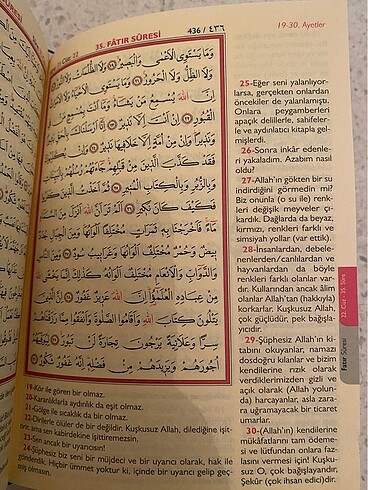 22.Cüz
35. FÂTIR SÛRESİ
436 / ٤٣٦
19-30. Ayetler
وَمَا يَسْتَوِي الْأَعْمٰى وَالْبَصِيرُ ۞ وَلَا الظُّلُمَاتُ وَلَا النُّورُ
وَلَا الظِّلُّ وَلَا الْحَرُورُ ۞ وَمَا يَسْتَوِي الْأَحْيَاءُ وَلَا الْأَمْوَاتُ
إِنَّ اللّٰهَ يُسْمِعُ مَنْ يَشَاءُ وَمَا أَنْتَ بِمُسْمِعٍ مَنْ فِي
الْقُبُورِ ۞ إِنْ أَنْتَ إِلَّا نَذِيرٌ ۞ إِنَّا أَرْسَلْنَاكَ بِالْحَقِّ بَشِيرًا
وَنَذِيرًا وَإِنْ مِنْ أُمَّةٍ إِلَّا خَلَا فِيهَا نَذِيرٌ ۞ وَإِنْ يُكَذِّبُوكَ
فَقَدْ كَذَّبَ الَّذِينَ مِنْ قَبْلِهِمْ جَاءَتْهُمْ رُسُلُهُمْ بِالْبَيِّنَاتِ
وَبِالزُّبُرِ وَبِالْكِتَابِ الْمُنِيرِ ۞ ثُمَّ أَخَذْتُ الَّذِينَ كَفَرُوا
فَكَيْفَ كَانَ نَكِيرِ ۞ أَلَمْ تَرَ أَنَّ اللّٰهَ أَنْزَلَ مِنَ السَّمَاءِ
مَاءً فَأَخْرَجْنَا بِهِ ثَمَرَاتٍ مُخْتَلِفًا أَلْوَانُهَا وَمِنَ الْجِبَالِ جُدَدٌ
بِيضٌ وَحُمْرٌ مُخْتَلِفٌ أَلْوَانُهَا وَغَرَابِيبُ سُودٌ ۞ وَمِنَ النَّاسِ
وَالدَّوَابِّ وَالْأَنْعَامِ مُخْتَلِفٌ أَلْوَانُهُ كَذٰلِكَ إِنَّمَا يَخْشَى اللّٰهَ
مِنْ عِبَادِهِ الْعُلَمَاءُ إِنَّ اللّٰهَ عَزِيزٌ غَفُورٌ ۞ إِنَّ الَّذِينَ
يَتْلُونَ كِتَابَ اللّٰهِ وَأَقَامُوا الصَّلٰوةَ وَأَنْفَقُوا مِمَّا رَزَقْنَاهُمْ
سِرًّا وَعَلَانِيَةً يَرْجُونَ تِجَارَةً لَنْ تَبُورَ ۞ لِيُوَفِّيَهُمْ
أُجُورَهُمْ وَيَزِيدَهُمْ مِنْ فَضْلِهِ إِنَّهُ غَفُورٌ شَكُورٌ
19-Kör ile gören bir olmaz.
20-Karanlıklarla aydınlık da eşit olmaz.
21-Gölge ile sıcaklık da bir olmaz.
22-Dirilerle ölüler de bir değildir. Kuşkusuz Allah, dilediğine işit-
tirir, ama sen kabirdekine işittiremezsin.
23-Sen ancak bir uyarıcısın!
24-Şüphesiz biz seni bir müjdeci ve bir uyarıcı olarak, hak ile
gönderdik. Hiçbir ümmet yoktur ki, içinde bir uyarıcı gelip geç-
miş olmasın.
25-Eğer seni yalanlıyor-
larsa, gerçekten onlardan
öncekiler de yalanlamıştı.
Onlara peygamberleri
apaçık delillerle, sahifeler-
le ve aydınlatıcı kitapla gel-
mişlerdi.
26-Sonra inkâr edenle-
ri yakaladım. Azabım nasıl
oldu?
27-Allah'ın gökten bir su
indirdiğini görmedin mi?
Biz onunla (o su ile) renk-
leri değişik meyveler çı-
kardık. Dağlarda da beyaz,
kırmızı, renkleri farklı ve
simsiyah yollar (var ettik).
28-İnsanlardan, debele-
nenlerden/canlılardan ve
hayvanlardan da böyle
renkleri farklı olanlar var-
dır. Kullarından ancak âlim
olanlar Allah'tan (hakkıyla)
korkarlar. Kuşkusuz Allah,
çok güçlüdür, pek bağışla-
yıcıdır.
29-Şüphesiz Allah'ın ki-
tabını okuyanlar, namazı
dosdoğru kılanlar ve bizim
kendilerine rızık olarak
verdiklerimizden gizli ve
açık olarak (Allah yolun-
da) harcayanlar, asla zara-
ra uğramayacak bir ticaret
umarlar.
30-(Allah'ın) kendilerine
mükâfatlarını tam ödeme-
si ve lütfundan onlara faz-
lasını vermesi için; Kuşku-
suz O, çok bağışlayandır,
Şekûr (çok ihsan edici)dir.
22. Cüz - 35. Sûre
Fâtır Sûresi
SÛRESİ